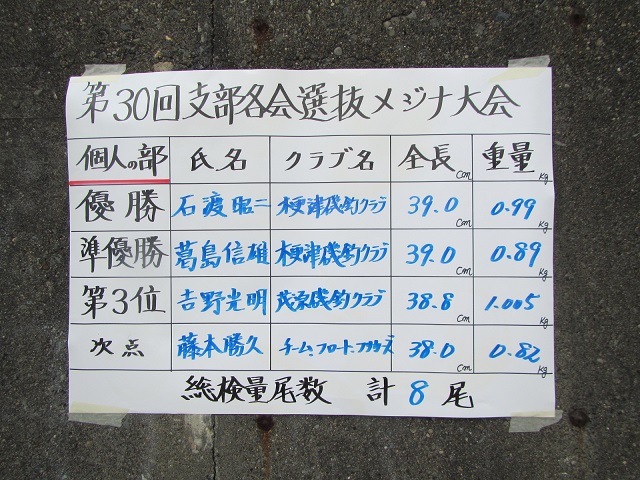 第30回支部各会選抜メジナ大会
個人の部 氏名 クラブ名 全長cm 重量kg
優勝 石渡昭二 木更津磯釣クラブ 39.0cm 0.99kg
準優勝 葛島信雄 木更津磯釣クラブ 39.0cm 0.89kg
第3位 吉野光明 茂原磯釣クラブ 38.8cm 1.005kg
次点 藤本勝久 チームフロート 38.0cm 0.82kg
総検量尾数 計8尾